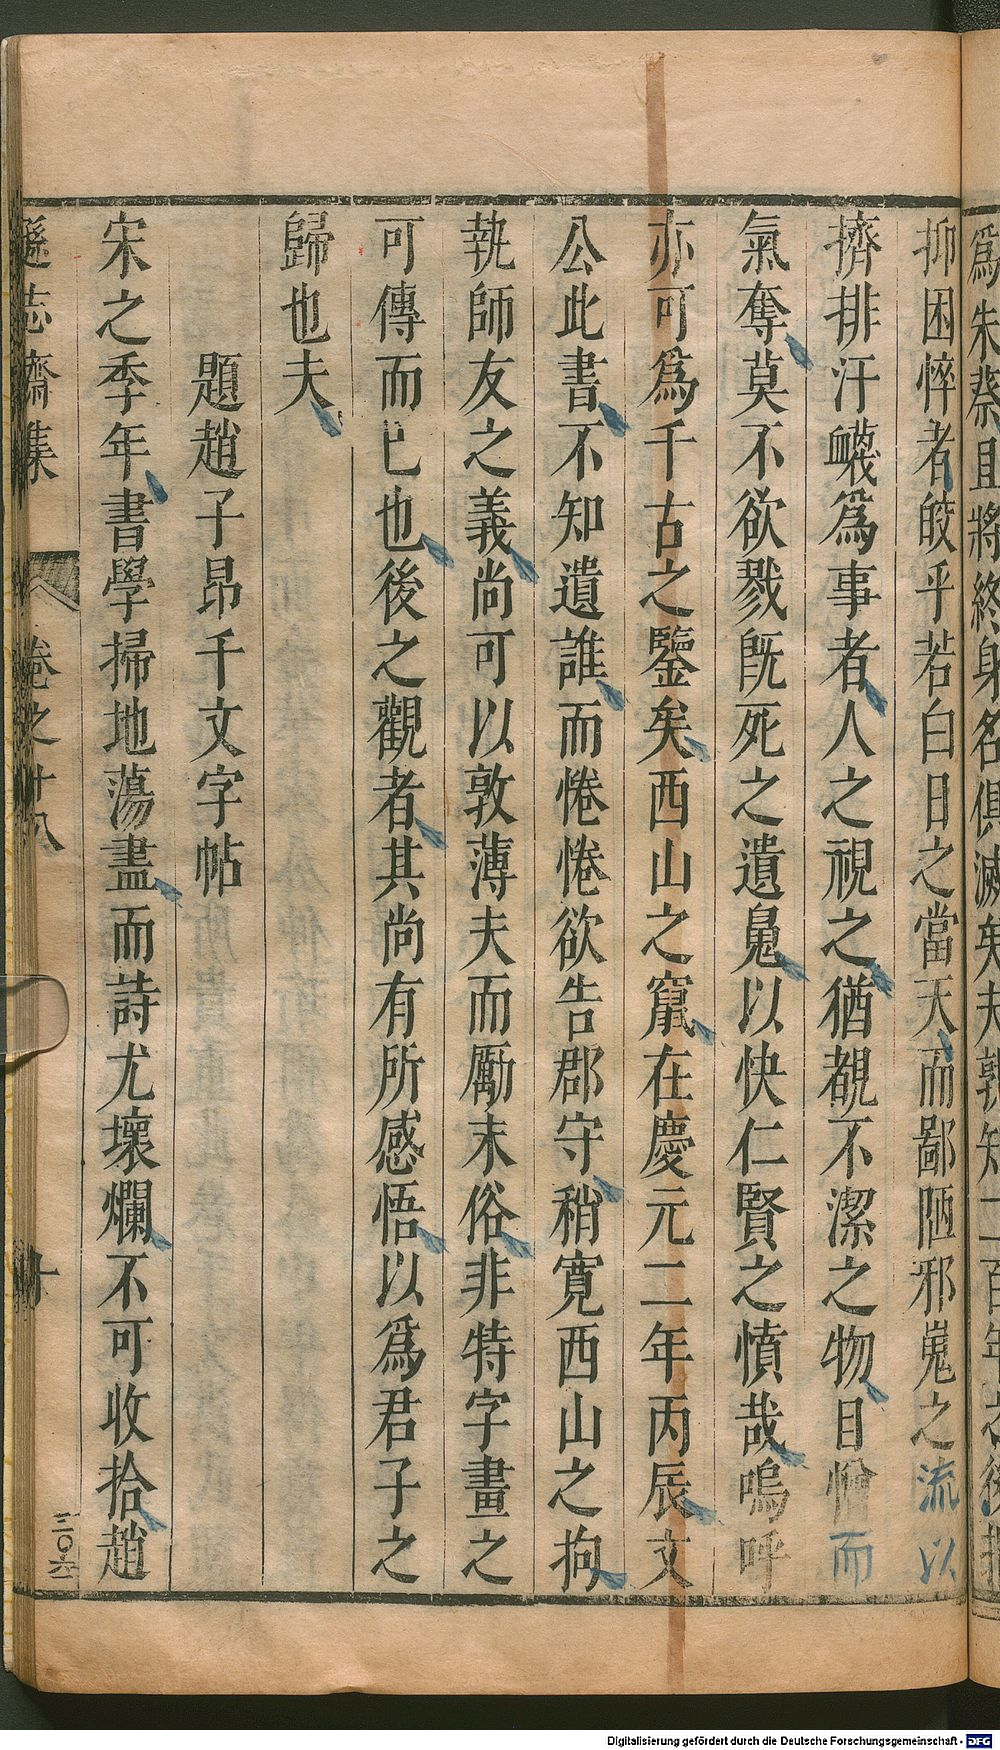 爲朱蔡且將終身名俱滅矣夫孰知二百年之後
抑困悴者皎乎若白日之當天而鄙陋邪嵬之流以
擠排汙衊爲事者人之視之猶覩不潔之物目憎而
氣奪莫不欲戮旣死之遺鬼以快仁賢之憤哉嗚呼
亦可爲千古之鑒矣西山之竄在慶元二年丙辰文
公此書不知遺誰而惓惓欲告郡守稍寬西山之拘
執師友之義尚可以敦薄夫而厲末俗非特字畫之
可傳而已也後之觀者其尚有所感悟以爲君子之
歸也夫
題趙子昂千文字帖
宋之季年書學掃地蕩盡而詩尤壞爛不可收拾趙
遜志齋集
卷之十八
十
三〇六
Digitalisierung gefördert durch die Deutsche Forschungsgemeinschaft - DFG